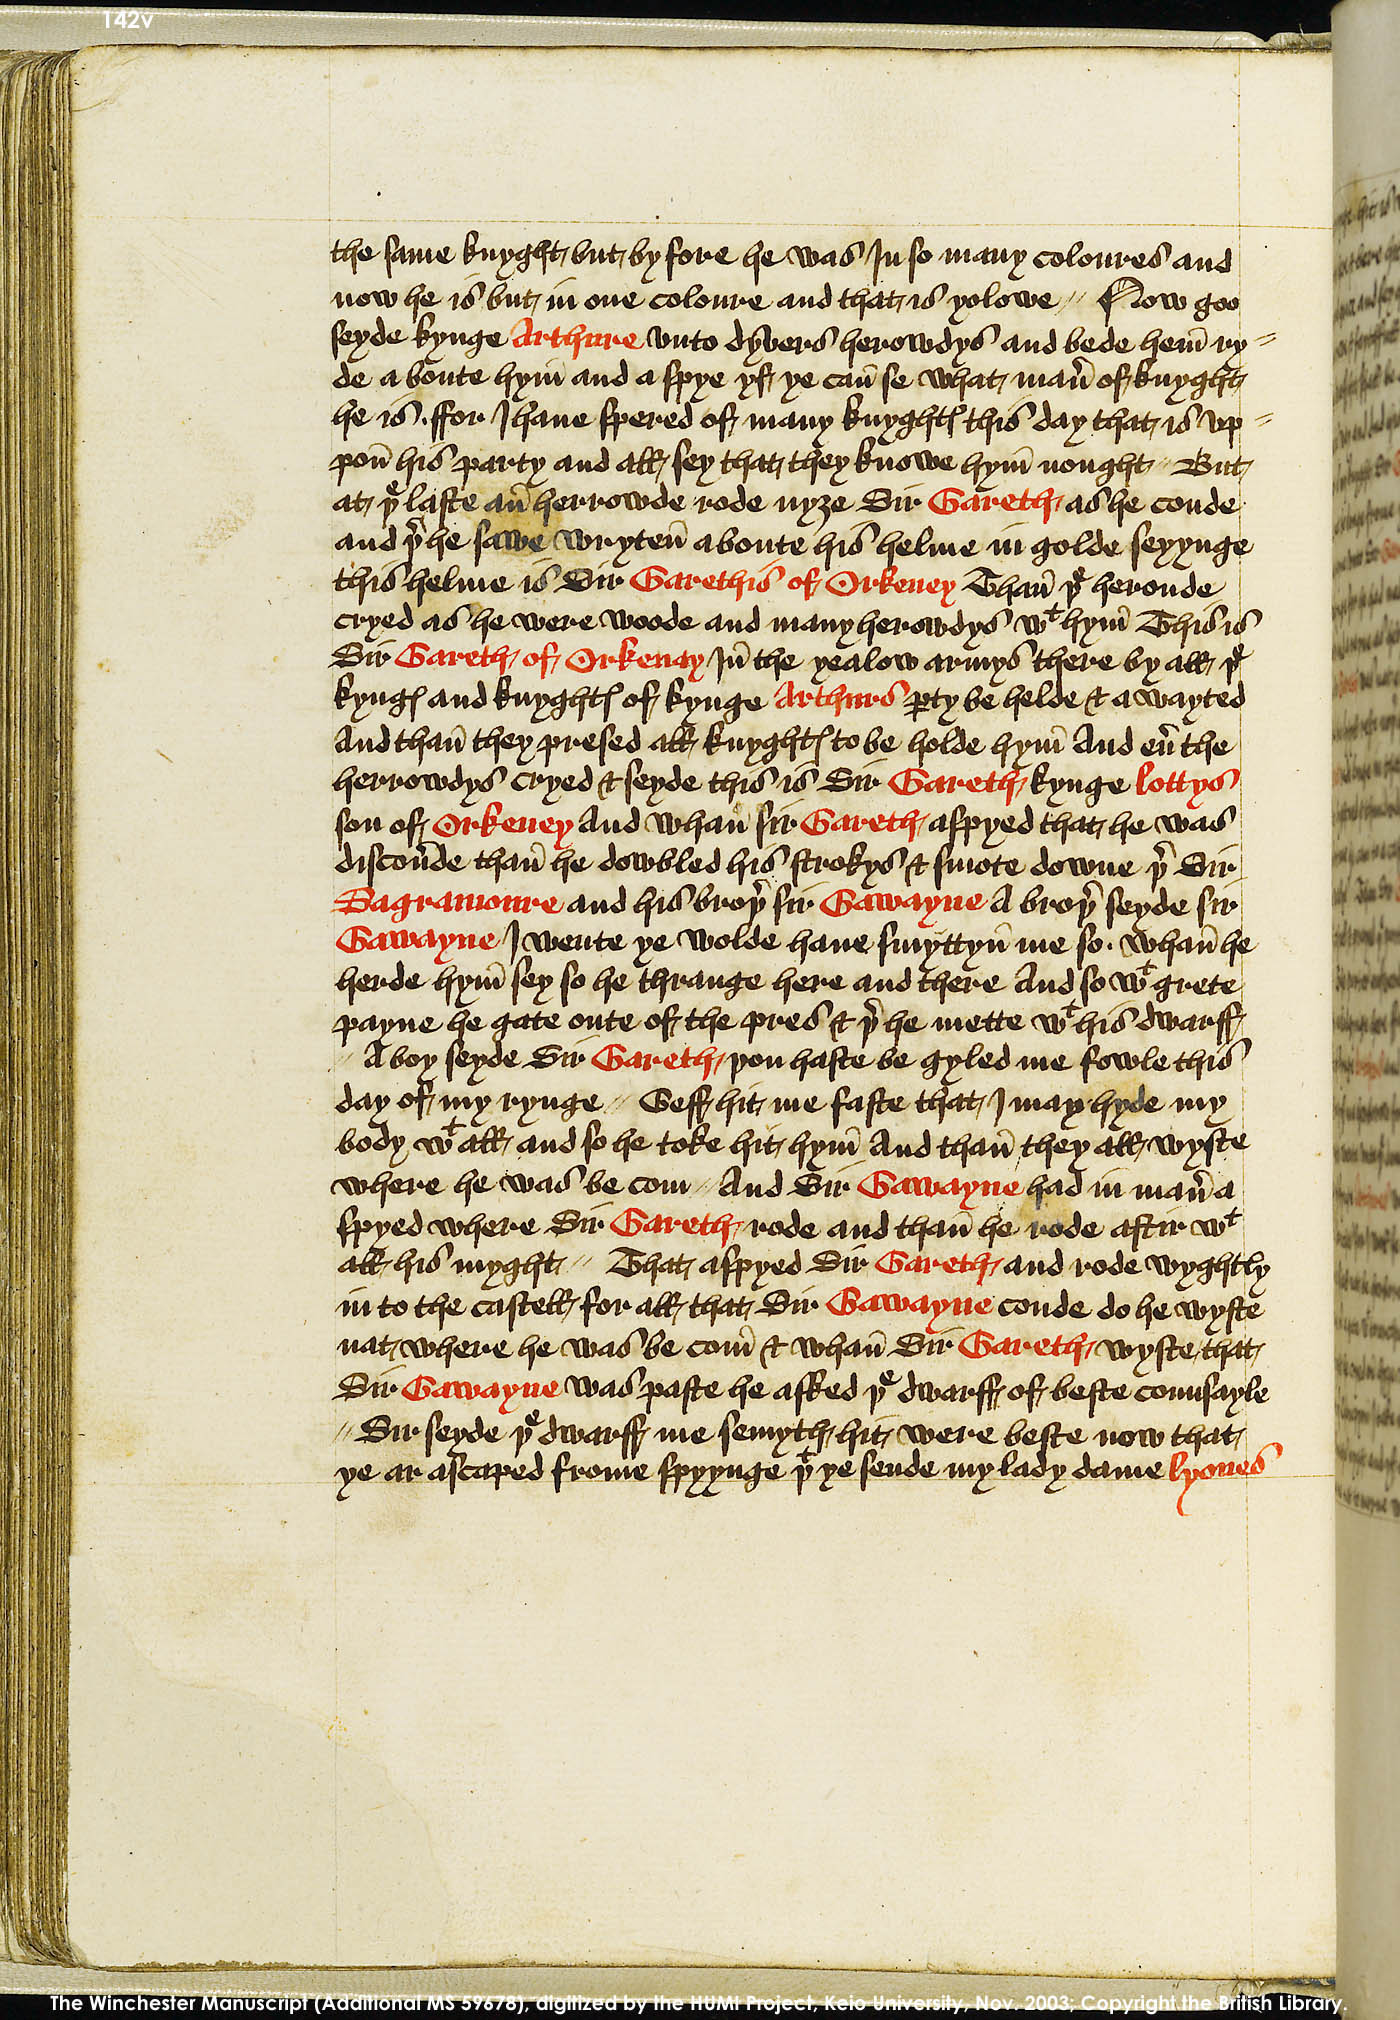 142v
the same knyght but by fore he was In so many coloures and
now he is but in one coloure and that is yolowe // Now goo
seyde kynge Arthure vnto dyvers herowdys and bede hem̄ ry-
de a boute hym̄ and a spye yf ye can̄ se what man̄ of knyght
he is . ffor I haue spered of many knyghtꝭ this day that is vp-
pon̄ his party and all sey that they knowe hym̄ nought // But
at þͤ laste an̄ herrowde rode nyȝe Sir Gareth as he coude
and þ̉ he sawe wryten̄ aboute his helme in golde seyynge
this helme is Sir Garethis of Orkeney Than̄ þͤ heroude
cryed as he were woode and many herowdys wᵗ hym̄ This is
Sir Gareth of Orkenay In̄ the yealow armys there by all þͤ
kyngꝭ and knyghtꝭ of kynge Arthurs ꝑty be helde & a wayted
And than̄ they presed all knyghtꝭ to be holde hym̄ And eủ the
herrowdys cryed & seyde this is Sir Gareth kynge lottys
son of Orkeney And whan̄ sir Gareth aspyed that he was
discoủde than̄ he dowbled his strokys & smote downe þ̉ Sir
Sagramoure and his broþ̉ sir Gawayne A broþ̉ seyde sir
Gawayne I wente ye wolde haue smyttyn̄ me so . whan̄ he
herde hym̄ sey so he thrange here and there And so wᵗ grete
payne he gate oute of the pres & þ̉ he mette wᵗ his dwarff
// A boy seyde Sir Gareth þou haste be gyled me fowle this
day of my rynge // Geff hit me faste that I may hyde my
body wᵗ all and so he toke hit hym̄ And than̄ they all wyste
where he was be com // And Sir Gawayne had in man̄ a
spyed where Sir Gareth rode and than̄ he rode aftir wᵗ
all his myght // That aspyed Sir Gareth and rode wyghtly
in to the castell for all that Sir Gawayne coude do he wyste
nat where he was be com̄ & whan̄ Sir Gareth wyste that
Sir Gawayne was paste he asked þͤ dwarff of beste counsayle
// Sir seyde þͤ dwarff me semyth hit were beste now that
ye ar ascaped frome spyynge þᵗ ye sende my lady dame lyones
The Winchester Manuscript (Additional MS 59678), digitized by the HUMI Project, Keio University, Nov. 2003; Copyright the British Library.